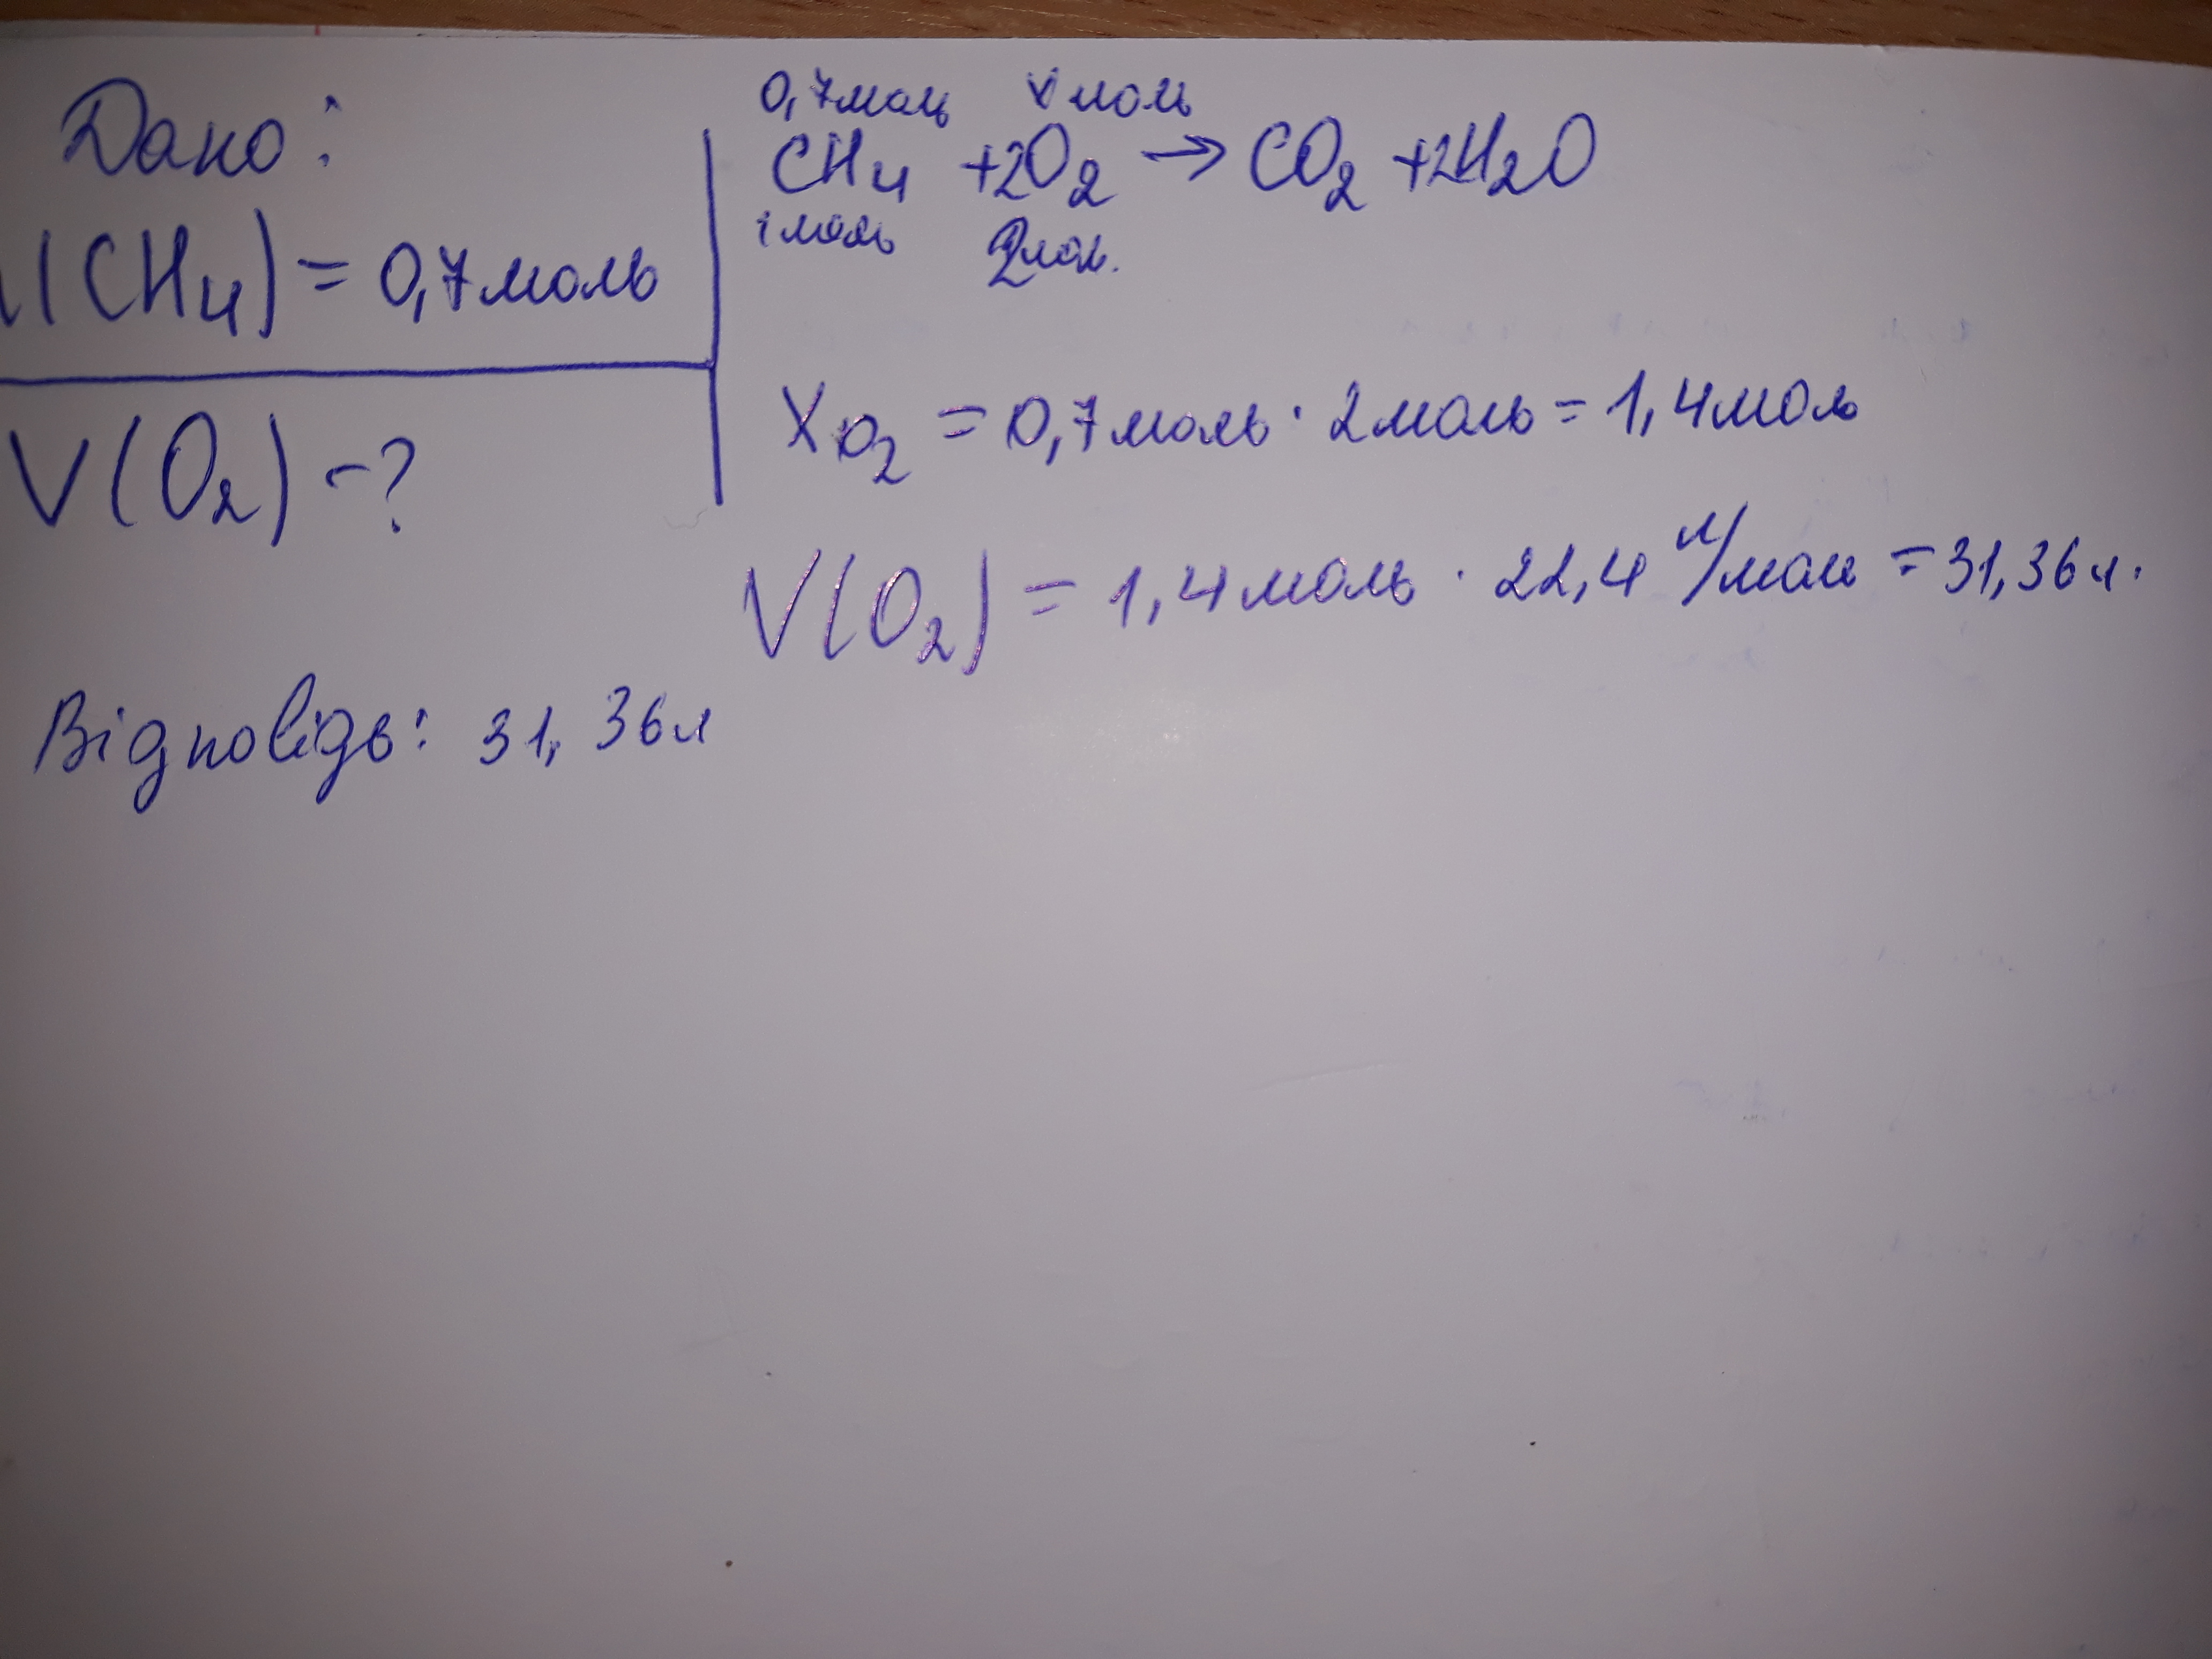 Дано:
(CH4) = 0,7моль
V(O2) -?
0,7моль x моль
CH4 +2O2 → CO2 +2H2O
1моль 2мол.
XO2 = 0,7моль · 2моль = 1,4моль
V(O2) = 1,4моль · 22,4 л/моль = 31,36л.
Відповідь: 31,36л